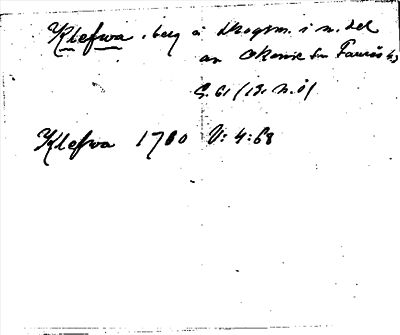 Klefwa, berg å skogsm. i n. del
av Ökenie sn Faurås hd
S. 61 (13, n. ö)
Klefwa 1780 V: 4: 68